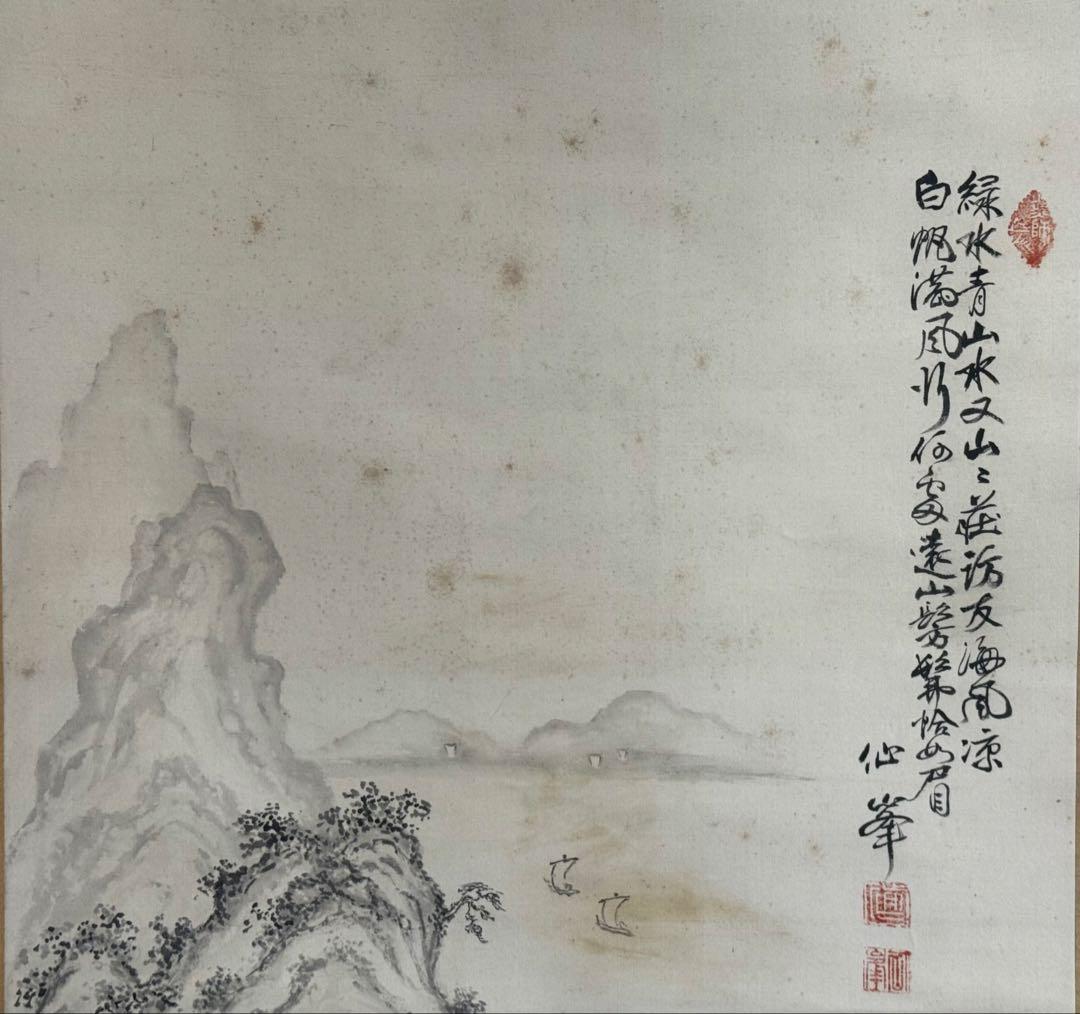 緑水青山水又山〻荘訪友海風涼
白帆満風行何處遠山髣髴恰如眉
仙峯